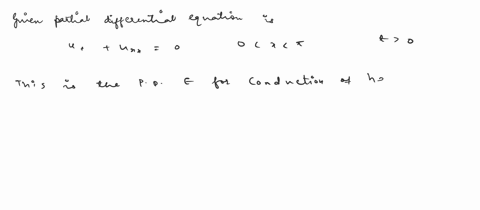 Given partial differential equation is
u. + uxx = 0 0 < x < π t > 0
This is the P.D. E for Conduction of he